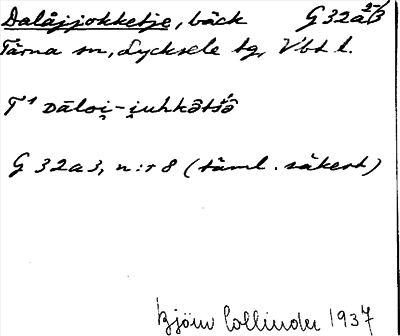 Dalåjjokketje, bäck G32a2-3
Tärna sn, Lycksele lg, Vbt l.
T¹ Dāloi̯-i̯uhkətšə
G 32a3, n:r 8 (täml. säkert)
Björn Collinder 1937